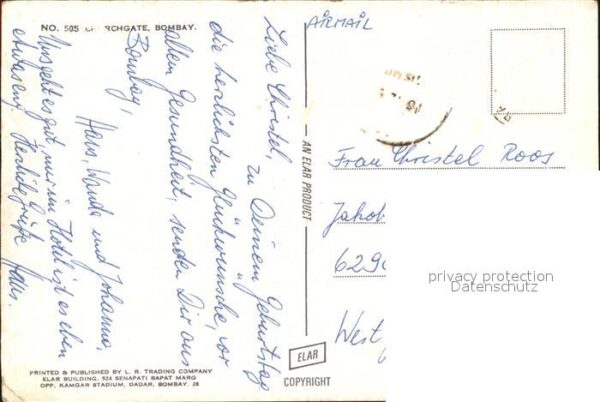 NO. 505 CHURCHGATE, BOMBAY.
AIRMAIL
Liebe Christel,
zu Deinem Geburtstag
die herzlichsten Glückwünsche, vor
allem Gesundheit, senden Dir aus
Bombay,
Hans, Wanda und Johanna.
Uns geht es gut, nur im Hotel ist es eben
Herzliche Grüße Hans.
AN ELAR PRODUCT
Frau Christel Roos
Jakob
629
West
privacy protection
Datenschutz
ELAR
COPYRIGHT
PRINTED & PUBLISHED BY L. R. TRADING COMPANY
ELAR BUILDING, 524 SENAPATI BAPAT MARG
OPP. KAMGAR STADIUM, DADAR, BOMBAY. 28